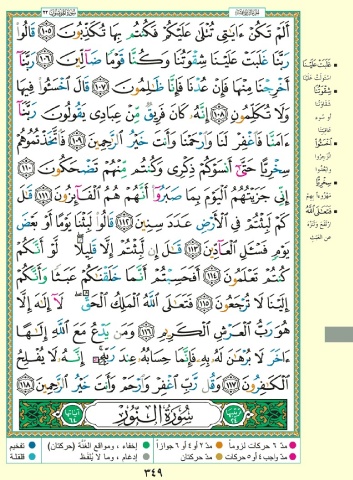 سورة المؤمنون ٢٣
أَلَمْ تَكُنْ ءَايَٰتِى تُتْلَىٰ عَلَيْكُمْ فَكُنتُم بِهَا تُكَذِّبُونَ ١٠٥ قَالُوا۟
رَبَّنَا غَلَبَتْ عَلَيْنَا شِقْوَتُنَا وَكُنَّا قَوْمًا ضَآلِّينَ ١٠٦ رَبَّنَآ
أَخْرِجْنَا مِنْهَا فَإِنْ عُدْنَا فَإِنَّا ظَٰلِمُونَ ١٠٧ قَالَ ٱخْسَـُٔوا۟ فِيهَا
وَلَا تُكَلِّمُونِ ١٠٨ إِنَّهُۥ كَانَ فَرِيقٌ مِّنْ عِبَادِى يَقُولُونَ رَبَّنَآ
ءَامَنَّا فَٱغْفِرْ لَنَا وَٱرْحَمْنَا وَأَنتَ خَيْرُ ٱلرَّٰحِمِينَ ١٠٩ فَٱتَّخَذْتُمُوهُمْ
سِخْرِيًّا حَتَّىٰٓ أَنسَوْكُمْ ذِكْرِى وَكُنتُم مِّنْهُمْ تَضْحَكُونَ ١١٠
إِنِّى جَزَيْتُهُمُ ٱلْيَوْمَ بِمَا صَبَرُوٓا۟ أَنَّهُمْ هُمُ ٱلْفَآئِزُونَ ١١١ قَٰلَ
كَمْ لَبِثْتُمْ فِى ٱلْأَرْضِ عَدَدَ سِنِينَ ١١٢ قَالُوا۟ لَبِثْنَا يَوْمًا أَوْ بَعْضَ
يَوْمٍ فَسْـَٔلِ ٱلْعَآدِّينَ ١١٣ قَٰلَ إِن لَّبِثْتُمْ إِلَّا قَلِيلًا ۖ لَّوْ أَنَّكُمْ
كُنتُمْ تَعْلَمُونَ ١١٤ أَفَحَسِبْتُمْ أَنَّمَا خَلَقْنَٰكُمْ عَبَثًا وَأَنَّكُمْ
إِلَيْنَا لَا تُرْجَعُونَ ١١٥ فَتَعَٰلَى ٱللَّهُ ٱلْمَلِكُ ٱلْحَقُّ ۖ لَآ إِلَٰهَ إِلَّا
هُوَ رَبُّ ٱلْعَرْشِ ٱلْكَرِيمِ ١١٦ وَمَن يَدْعُ مَعَ ٱللَّهِ إِلَٰهًا
ءَاخَرَ لَا بُرْهَٰنَ لَهُۥ بِهِۦ فَإِنَّمَا حِسَابُهُۥ عِندَ رَبِّهِۦٓ ۚ إِنَّهُۥ لَا يُفْلِحُ
ٱلْكَٰفِرُونَ ١١٧ وَقُل رَّبِّ ٱغْفِرْ وَٱرْحَمْ وَأَنتَ خَيْرُ ٱلرَّٰحِمِينَ ١١٨
سُورَةُ النُّورِ
ترتيبها ٢٤
آياتها ٦٤
غَلَبَتْ عَلَيْنَا
استولت علينا
شِقْوَتُنَا
شقاوتنا
أو سوء
عاقبتنا
ٱخْسَـُٔوا۟
انزجروا
سِخْرِيًّا
مهزوءا بهم
فَتَعَٰلَى ٱللَّهُ
ارتفع وتنزه
عن العبث
مدّ ٦ حركات لزوماً
مدّ ٢ أو ٤ أو ٦ جوازاً
إخفاء، ومواقع الغُنَّة (حركتان)
تفخيم
مدّ واجب ٤ أو ٥ حركات
مدّ حركتان
إدغام، وما لا يُلفظ
قلقلة
٣٤٩